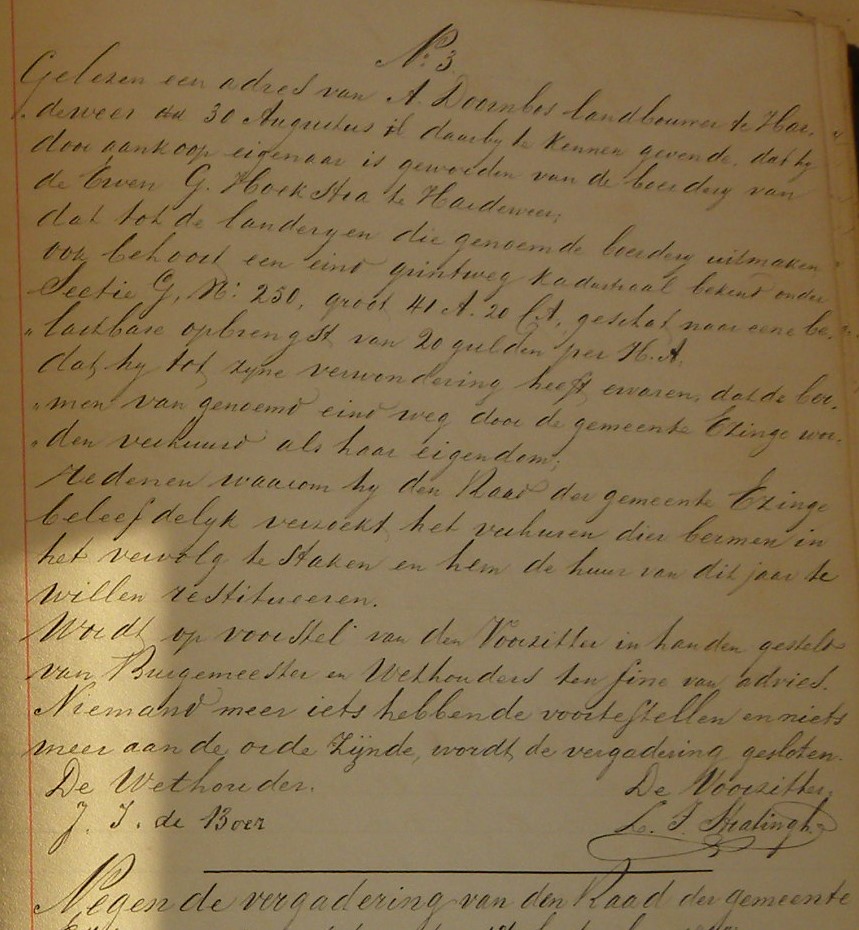 No. 3
Gelezen een adres van A. Doornbos landbouwer te Har„
„deweer dd 30 Augustus jl daarby te kennen gevende, dat hy
door aankoop eigenaar is geworden van de boerdery van
de Erven G. Hoekstra te Hardeweer;
dat tot de landeryen die genoemde boerdery uitmaken
ook behoort een eind grintweg kadastraal bekend onder
Sectie G, No: 250, groot 41 A. 20 CA, geschat naar eene be„
„lastbare opbrengst van 20 gulden per H.A.
dat hy tot zyne verwondering heeft ervaren, dat de ber„
„men van genoemd eind weg door de gemeente Ezinge wor„
„den verhuurd als haar eigendom;
redenen waarom hy den Raad der gemeente Ezinge
beleefdelyk verzoekt het verhuren dier bermen in
het vervolg te staken en hem de huur van dit jaar te
willen restitueeren.
Wordt op voorstel van den Voorzitter in handen gesteld
van Burgemeester en Wethouders ten fine van advies.
Niemand meer iets hebbende voortestellen en niets
meer aan de orde zijnde, wordt de vergadering gesloten.
De Wethouder. De Voorzitter,
J. J. de Boer
Negende vergadering van den Raad der gemeente